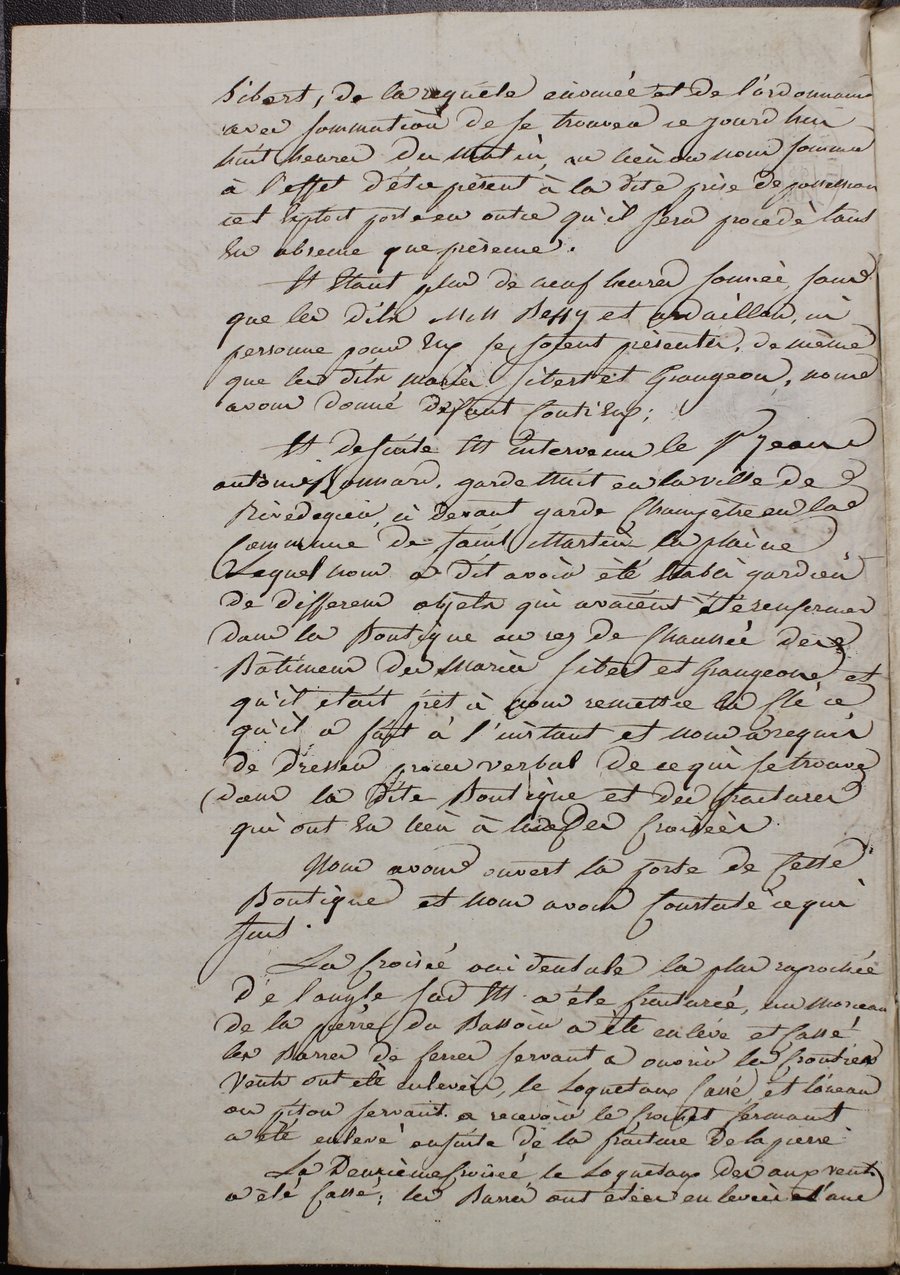 Sibert, de la requête énoncée et de l'ordonnance
avec sommation de se trouver ce jourd'hui
huit heures du matin, au lieu ou nous sommes
à l'effet d'être présent à la dite prise de possession
cet Exploit porte en outre qu'il sera procedé tant
En absence que présence.
Et Etant plus de neuf heures sonnée, sans
que les dits MM Bessy et ardaillon, ni
personne pour Eux se soient présentés, de même
que les dits mariés Sibert et Grangeon, nous
avons donné défaut Contr'Eux;
Et de suite Est Intervenu le Sr Jean
antoine Bonnard, garde Nuit en la ville de
Rivedegier, ci devant garde Champêtre en la
Commune de Saint Martin la plaine
Lequel nous a dit avoir été Etabli gardien
de differens objets qui avaient été renfermés
dans la Boutique au rez de Chaussée des
Bâtimens des Mariés Sibert et Grangeon, et
qu'il était prêt à nous remettre la Clé ce
qu'il a fait à l'instant et nous a requis
de dresser procès verbal de ce qui se trouve
dans la dite Boutique et des fractures
qui ont Eu lieu à croisées
Nous avons ouvert la porte de Cette
Boutique et nous avons Constaté ce qui
suit.
La Croisée occidentale la plus raprochée
de l'angle Sud Est a été fracturée, un morceau
de la pierre du Bassoir a été enlevé et Cassé
les Barres de ferres servant a ouvrir les Contre
Vents ont été enlevées, le Loquetaux Cassé, et l'aneau
ou piton servant a recevoir le crochet fermant
a été enlevé ensuite de la fracture de la pierre
La Deuxième Croisée, le Loquetaux des aux vents
a été Cassé; les Barres ont étées enlevées et l'une